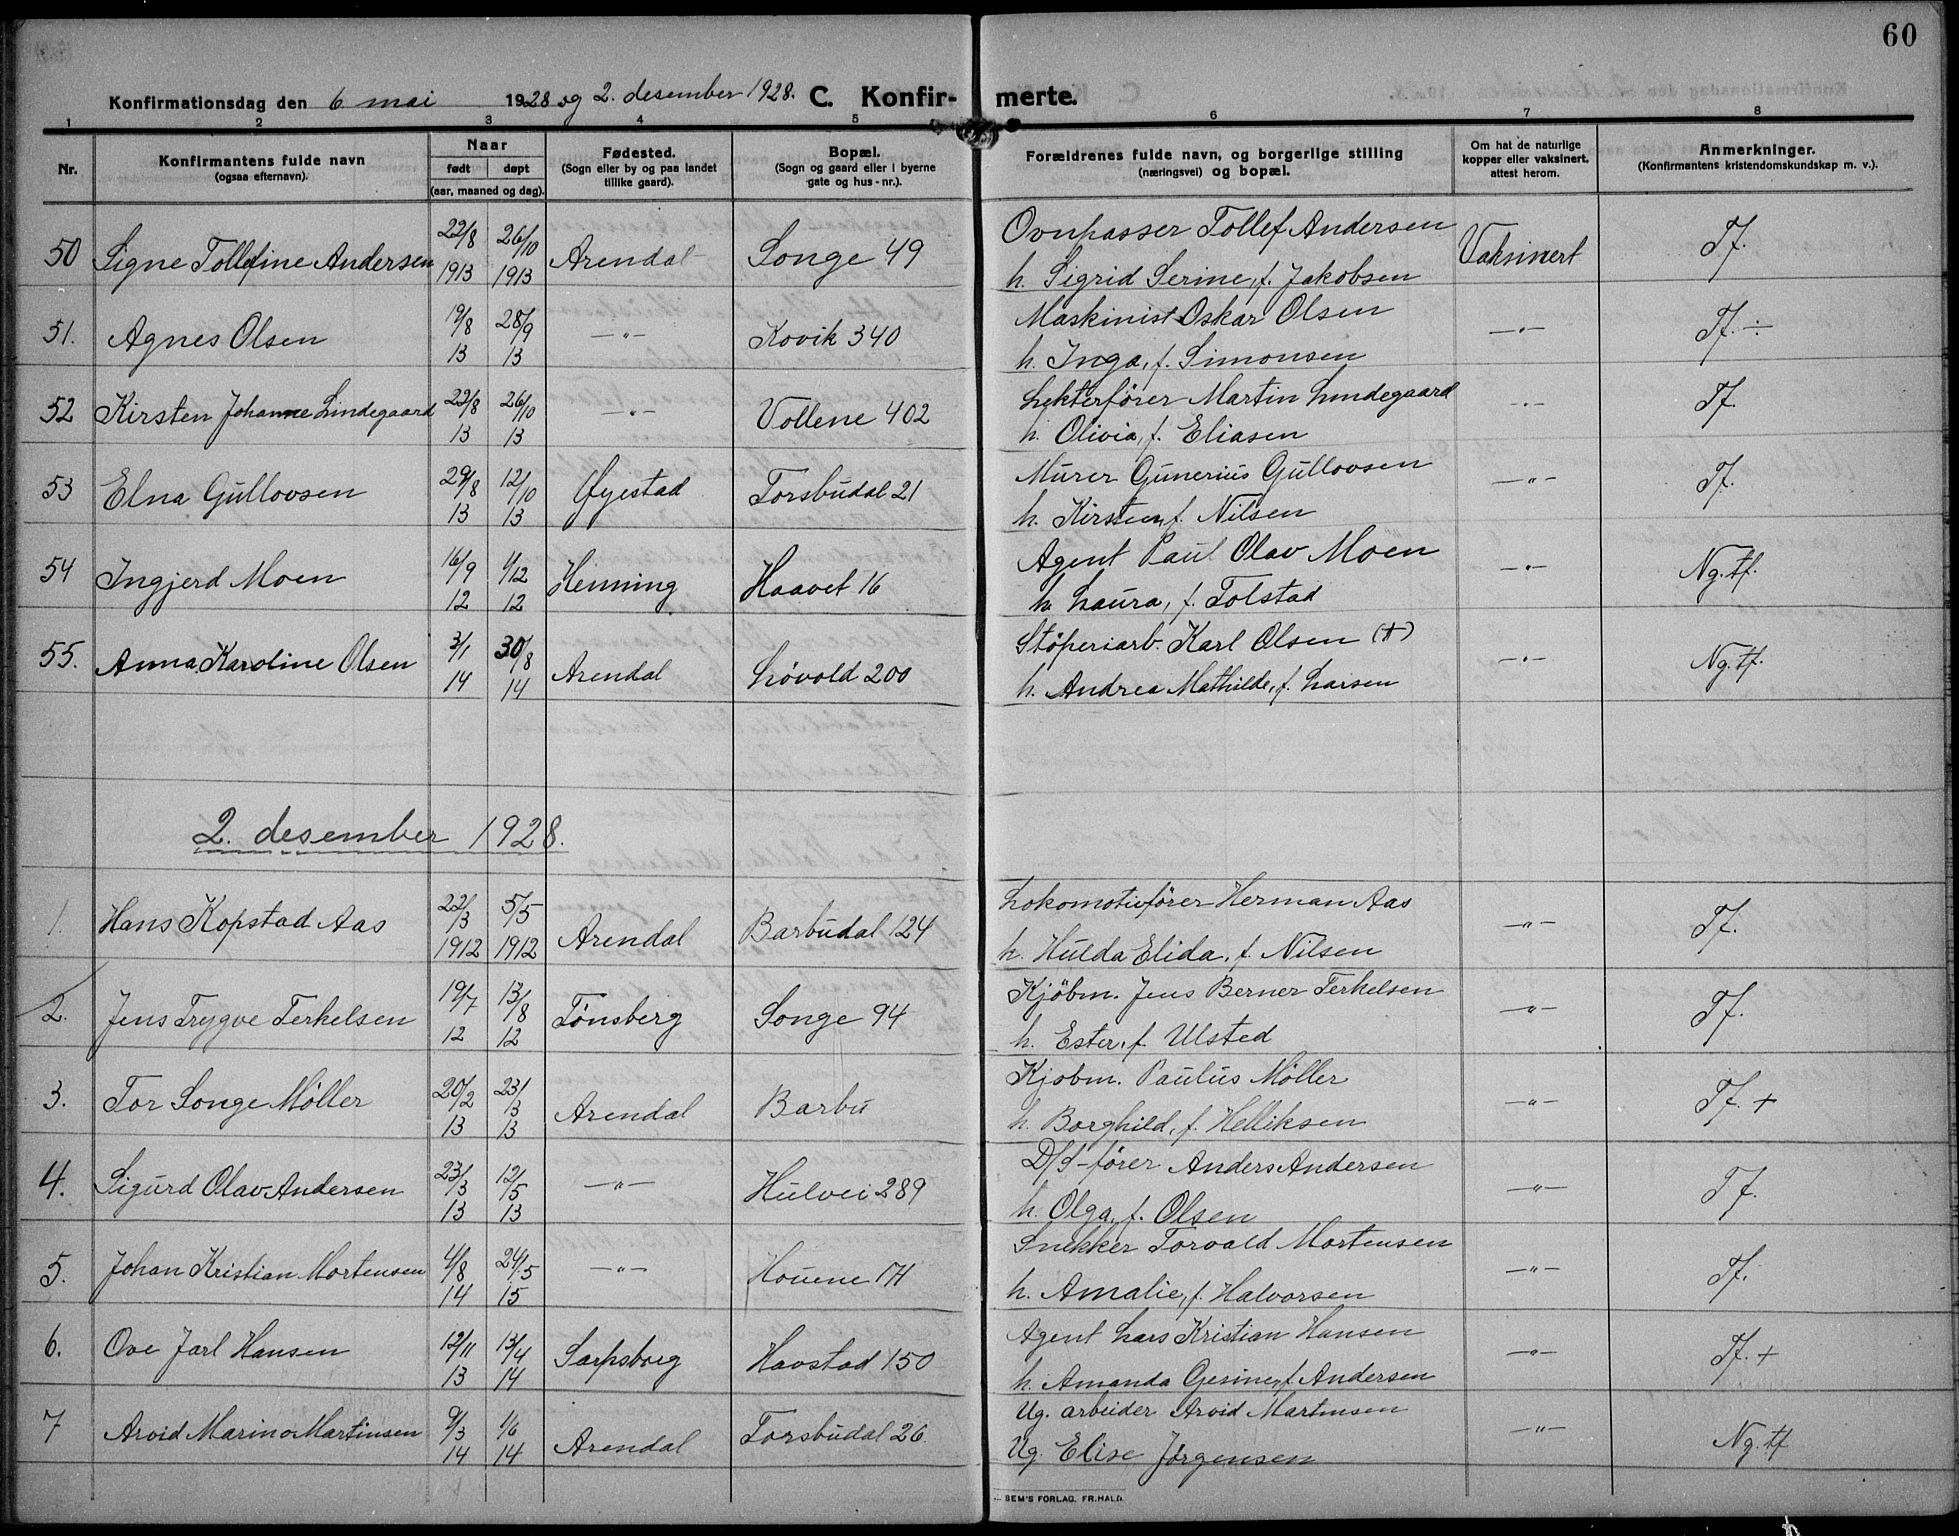 60
Konfirmationsdag den 6 mai 1928 og 2. desember 1928. C. Konfirmerte.
1 2 3 4 5 6 7 8
Nr.
Konfirmantens fulde navn
(ogsaa efternavn).
Naar
født døpt
(aar, maaned og dag).
Fødested.
(Sogn eller by og paa landet
tillike gaard).
Bopæl.
(Sogn og gaard eller i byerne
gate og hus-nr.).
Forældrenes fulde navn, og borgerlige stilling
(næringsvei) og bopæl.
Om hat de naturlige
kopper eller vaksinert,
attest herom.
Anmerkninger.
(Konfirmantens kristendomskundskap m. v.).
50 Signe Tollefine Andersen 22/8 1913 26/10 1913 Arendal Songe 49 Ovnpasser Tollef Andersen Vaksinert Tf.
h. Sigrid Serine, f. Jakobsen
51. Agnes Olsen 19/8 13 28/9 13 —"— Kovik 340 Maskinist Oskar Olsen —"— Tf. ÷
h. Inga, f. Simonsen
52 Kirsten Johanne Lindegaard 22/8 13 26/10 13 —"— Vollene 402 Lekterfører Martin Lindegaard —"— Tf.
h. Olivia, f. Eliasen
53 Elna Gullovsen 29/8 13 12/10 13 Øyestad Torsbudal 21 Murer Gunerius Gullovsen —"— Tf.
h. Kirsten, f. Nilsen
54 Ingjerd Moen 16/9 12 1/12 12 Henning Haavet 16 Agent Paul Olav Moen —"— Ng. tf.
h. Laura, f. Tolstad
55. Anna Karoline Olsen 3/1 14 30/8 14 Arendal Løvold 200 Støperiarb. Karl Olsen (+) —"— Ng. tf.
h. Andrea Mathilde, f. Larsen
2. desember 1928.
1. Hans Kopstad Aas 22/3 1912 5/5 1912 Arendal Barbudal 124 Lokomotivfører Herman Aas —"— Tf.
h. Hulda Elida, f. Nilsen
2. Jens Trygve Terkelsen 19/7 12 13/8 12 Tønsberg Songe 94 Kjøbm. Jens Berner Terkelsen —"— Tf.
h. Ester, f. Ulsted
3. Tor Songe Møller 20/2 13 23/3 13 Arendal Barbu Kjøbm. Paulus Møller —"— Tf. +
h. Borghild, f. Helliksen
4. Sigurd Olav Andersen 23/3 13 12/5 13 —"— Hulvei 289 D/S-fører Anders Andersen —"— Tf.
h. Olga, f. Olsen
5. Johan Kristian Mortensen 4/8 14 24/5 15 —"— Houene 174 Snekker Torvald Mortensen —"— Tf.
h. Amalie, f. Halvorsen
6. Ove Jarl Hansen 12/11 13 13/4 14 Sarpsborg Havstad 150 Agent Lars Kristian Hansen —"— Tf. +
h. Amanda Gerine, f. Andersen
7 Arvid Marino Martinsen 9/3 14 1/6 14 Arendal Torsbudal 26 Ug. arbeider Arvid Martinsen —"— Ng. tf
Ug. Elise Jørgensen
SEM'S FORLAG. FR.HALD.